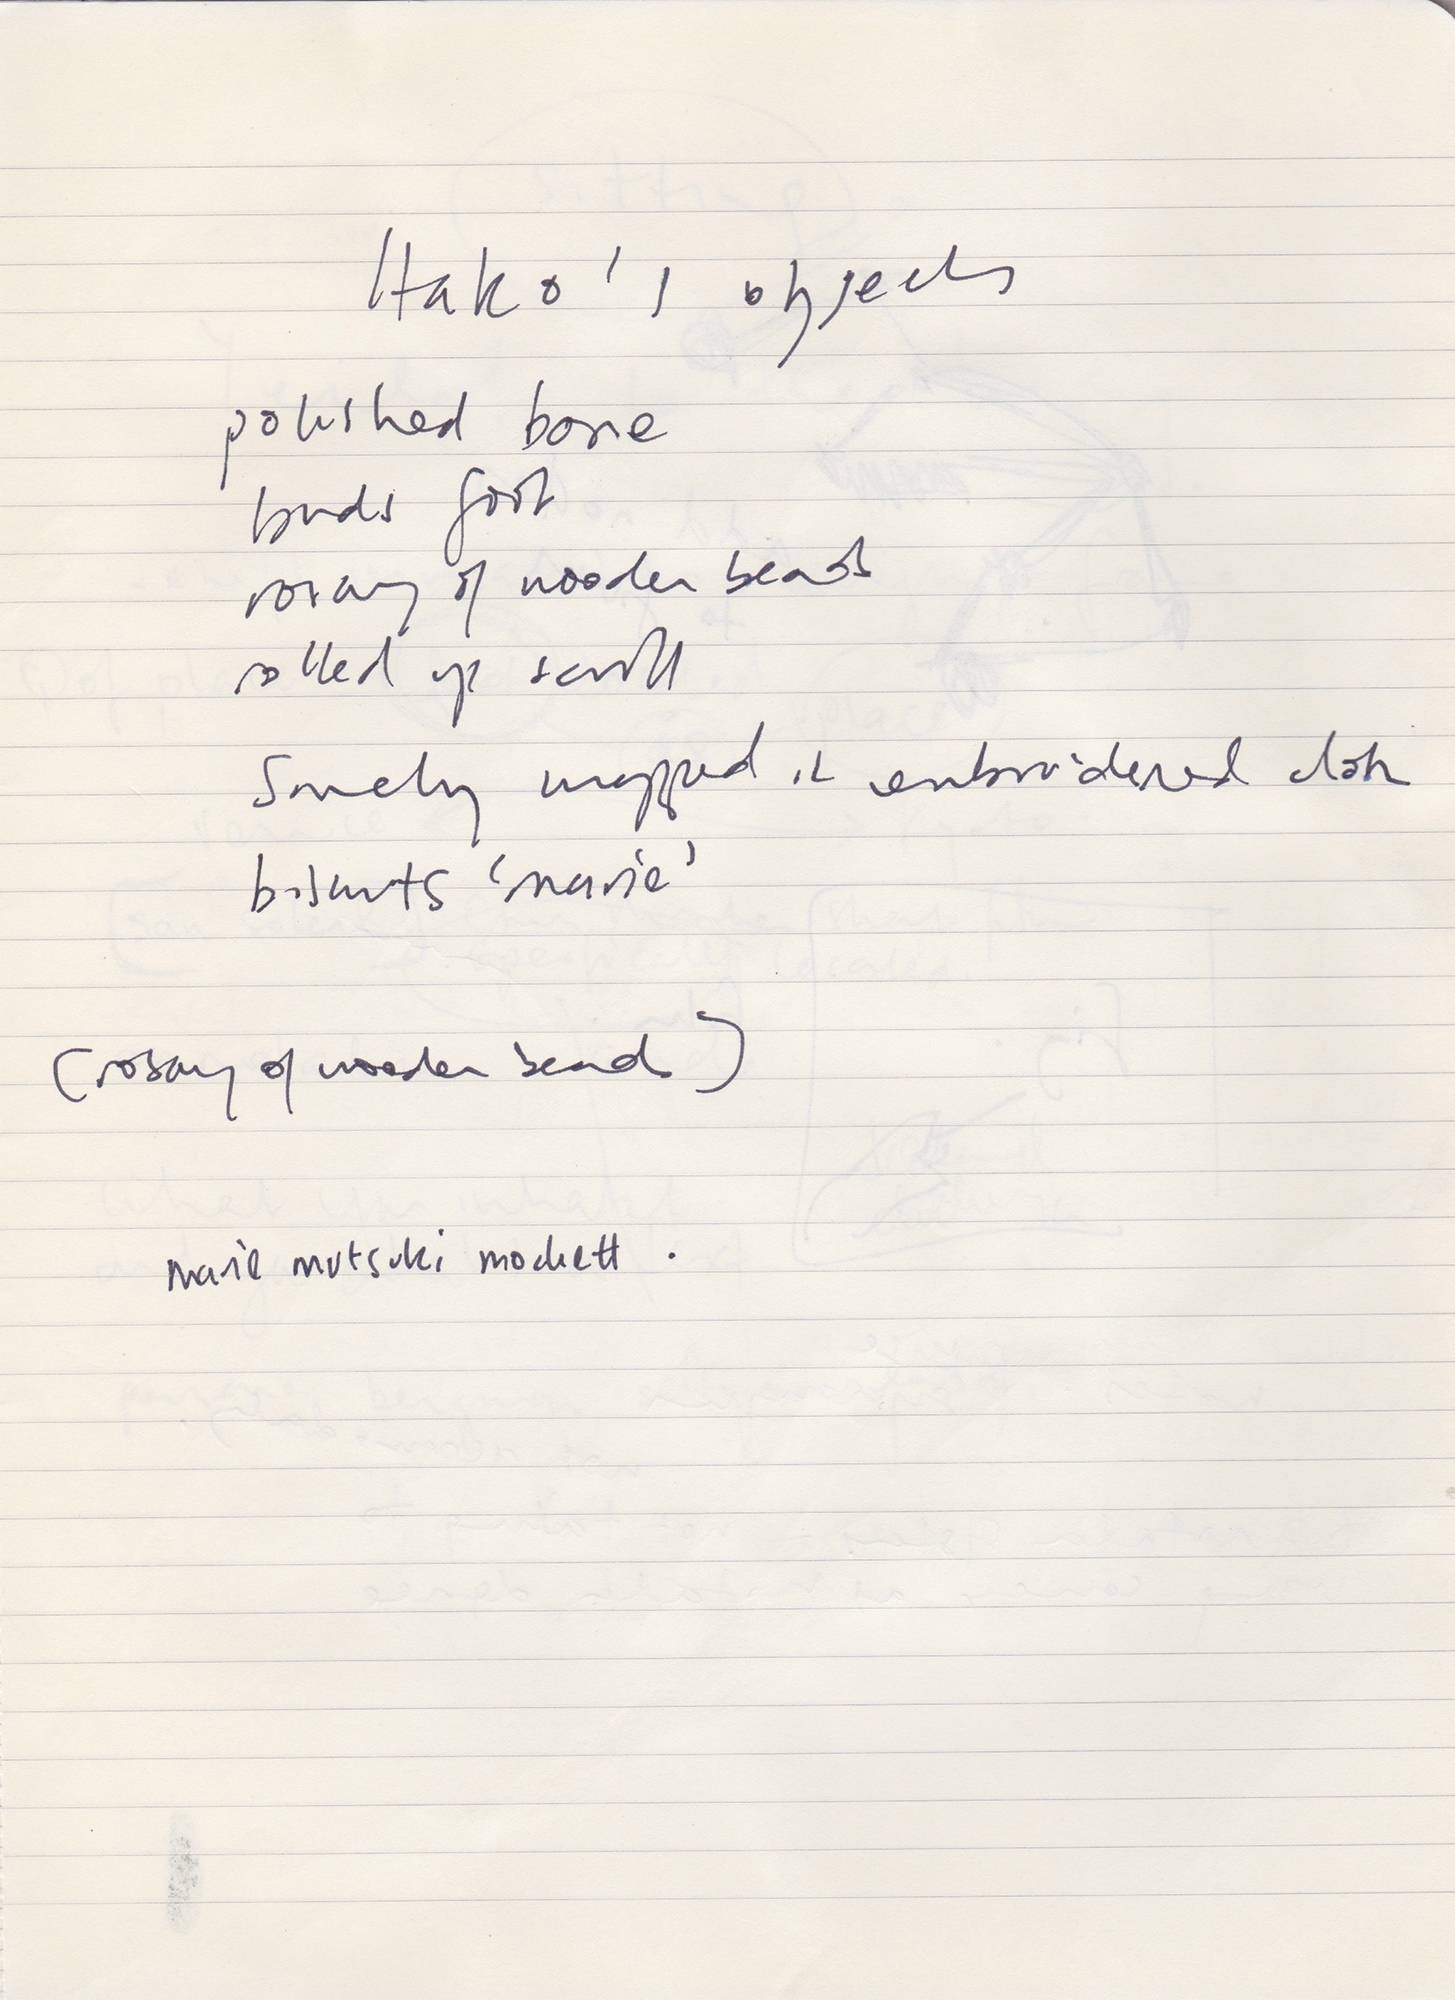 Itako's objects
polished bone
birds foot
rosary of wooden beads
rolled up scroll
Smelly wrapped in embroidered cloth
biscuits 'marie'
(rosary of wooden beads)
marie mutsuki mockett .